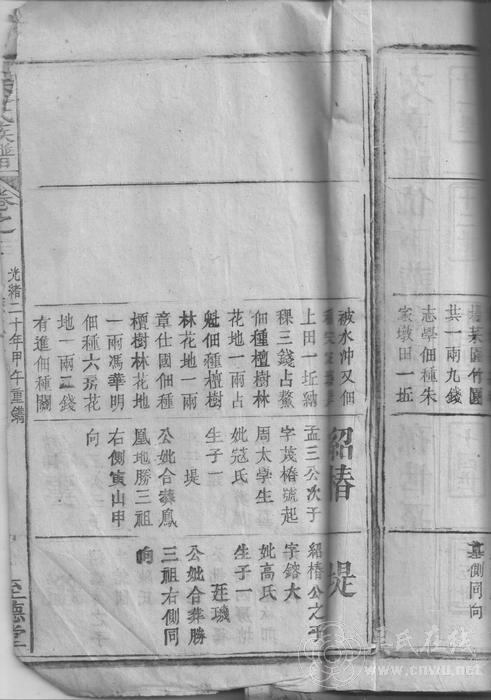 菜園竹園
共一兩九錢
志學佃種朱
家墩田一坵
墓側同向
被水沖又佃
上田一坵納
稞三錢占鰲
佃種檀樹林
花地一兩占
魁佃種檀樹
林花地一兩
章仕國佃種
檀樹林花地
一兩馮華明
佃種六房花
地一兩二錢
有進佃種關
紹椿
孟三公次子
字茂椿號起
周太學生
妣寇氏
生子一
堤
公妣合葬鳳
凰地勝三祖
右側寅山申
向
堤
紹椿公之子
字鎔大
妣高氏
生子一
廷璣
公妣合葬勝
三祖右側同
向
氏族譜
卷之
光緒二十年甲午重鐫
至德堂
吳氏在线
www.cnwu.net